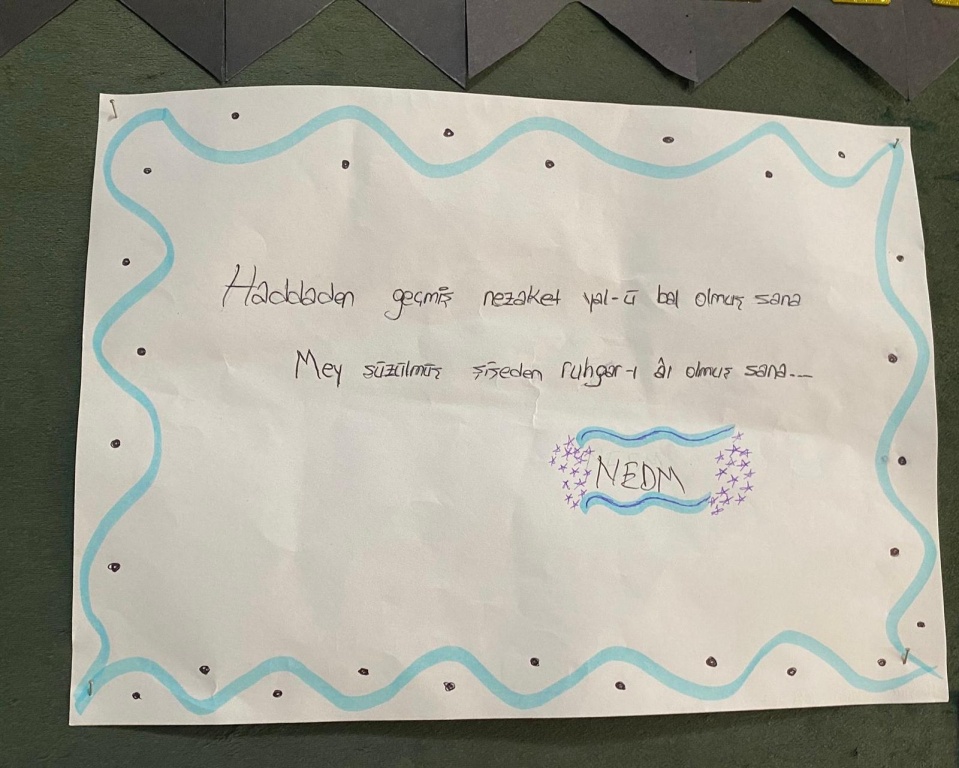 Haddaden geçmiş nezaket yal-ü bal olmuş sana
Mey süzülmüş şişeden ruhgar-ı âı olmuş sana...
NEDM